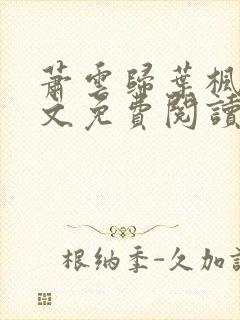 蕭雲歸葉楓
文免費閱讀
根納季-久加